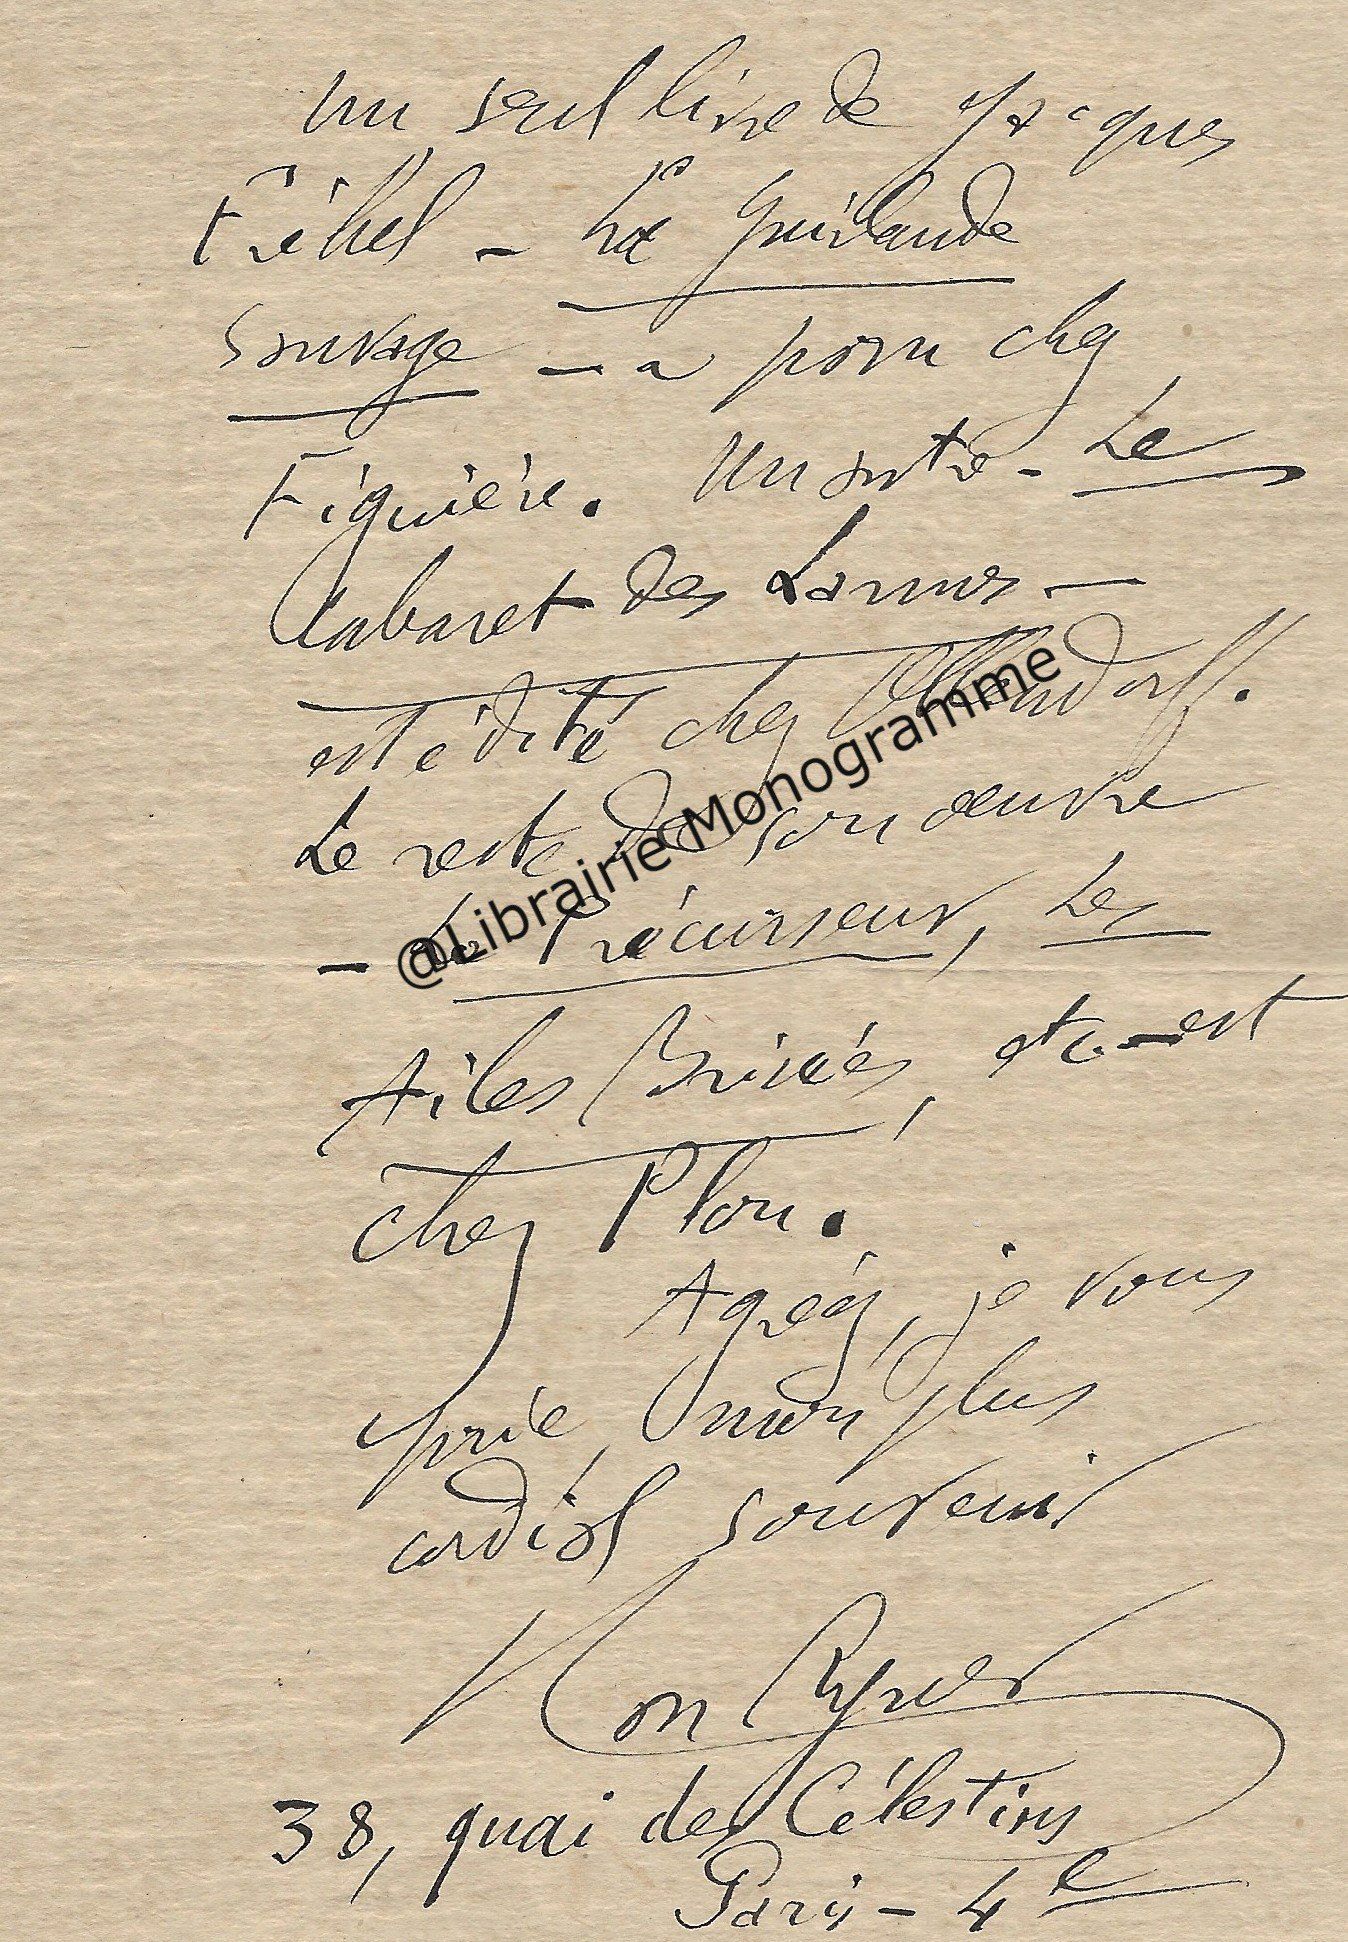 Un seul livre de Jacques
Fréhel - La Guirlande
Sauvage - a paru chez
Figuière. Un autre - Le
Cabaret des Larmes -
est édité chez Ollendorff.
Le reste de son œuvre
- Le Précurseur, Les
Ailes Brisées, etc. - est
chez Plon.
Agréez, je vous
prie, mon plus
cordial souvenir
Han Ryner
38, quai des Célestins
Paris - 4e
@Librairie Monogramme